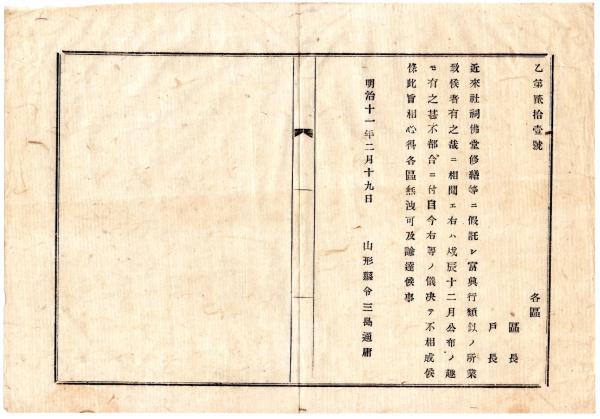 乙第貳拾壹號
各區
區長
戸長
近來社祠佛堂修繕等ニ假託シ富興行類似ノ所業
致候者有之哉ニ相聞ェ右ハ戊辰十二月公布ノ趣
モ有之甚不都合ニ付自今右等ノ儀决テ不相成候
條此旨相心得各區無洩可及諭達候事
明治十一年二月十九日
山形縣令三島通庸